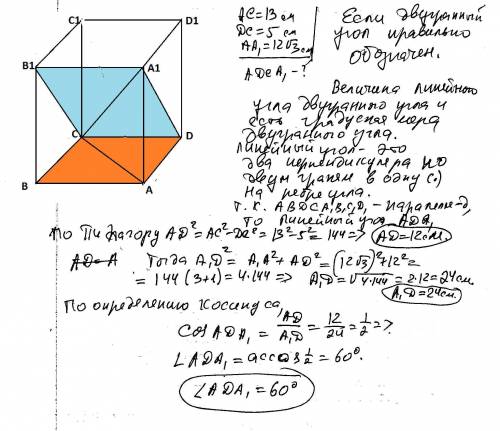 C1 D1
B1 A1
C D
B A
AC=13 см
DC=5 см
AA₁=12√3 см
ADCA₁-?
Если двугранный
угол правильно
обозначен.
Величина линейного
угла двугранного угла и
есть градусная мера
двугранного угла.
Линейный угол - это
два перпендикуляра по
двум граням в одну (·)
на ребре угла.
Т.к. ABDCA₁B₁C₁D₁ - параллел-д,
то линейный угол ADA₁
По Пифагору AD²=AC²-DC²=13²-5²=144=> AD=12см.
AD=A Тогда A₁D²=A₁A²+AD²=(12√3)²+12²=
=144(3+1)=4·144=> A₁D=√4·144=2·12=24см
A₁D=24см.
По определению косинуса,
cosADA₁=AD/A₁D=12/24=1/2=>
∠ADA₁=arccos 1/2=60°.
∠ADA₁=60°